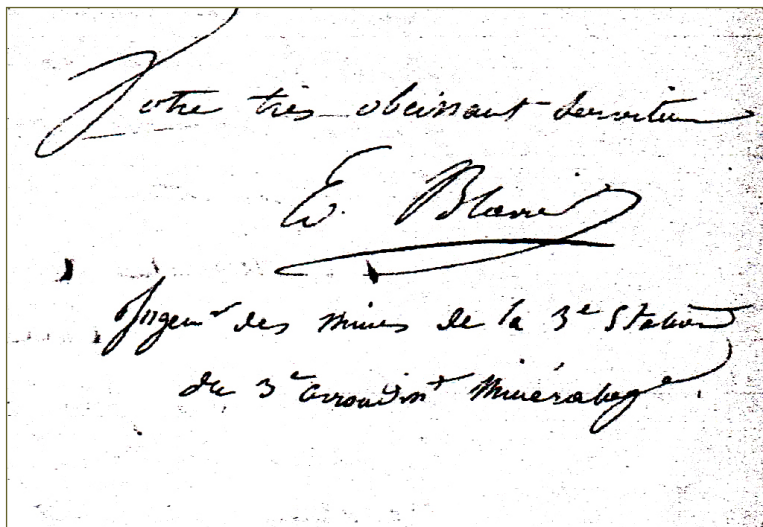 Votre très obeissant serviteur
E. Blavier
Ingenr des mines de la 3e Station
du 3e arrondismt Mineralog